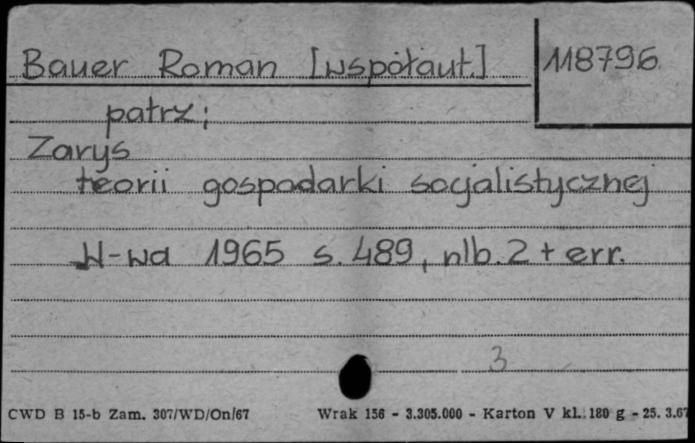 Bauer Roman [współaut.] 118796
patrz;
Zarys
teorii gospodarki socjalistycznej
W-wa 1965 s. 489, nlb. 2 + err.
3
CWD B 15-b Zam. 307/WD/On/67 Wrak 156 - 3.305.000 - Karton V kl. 180 g - 25. 3.67